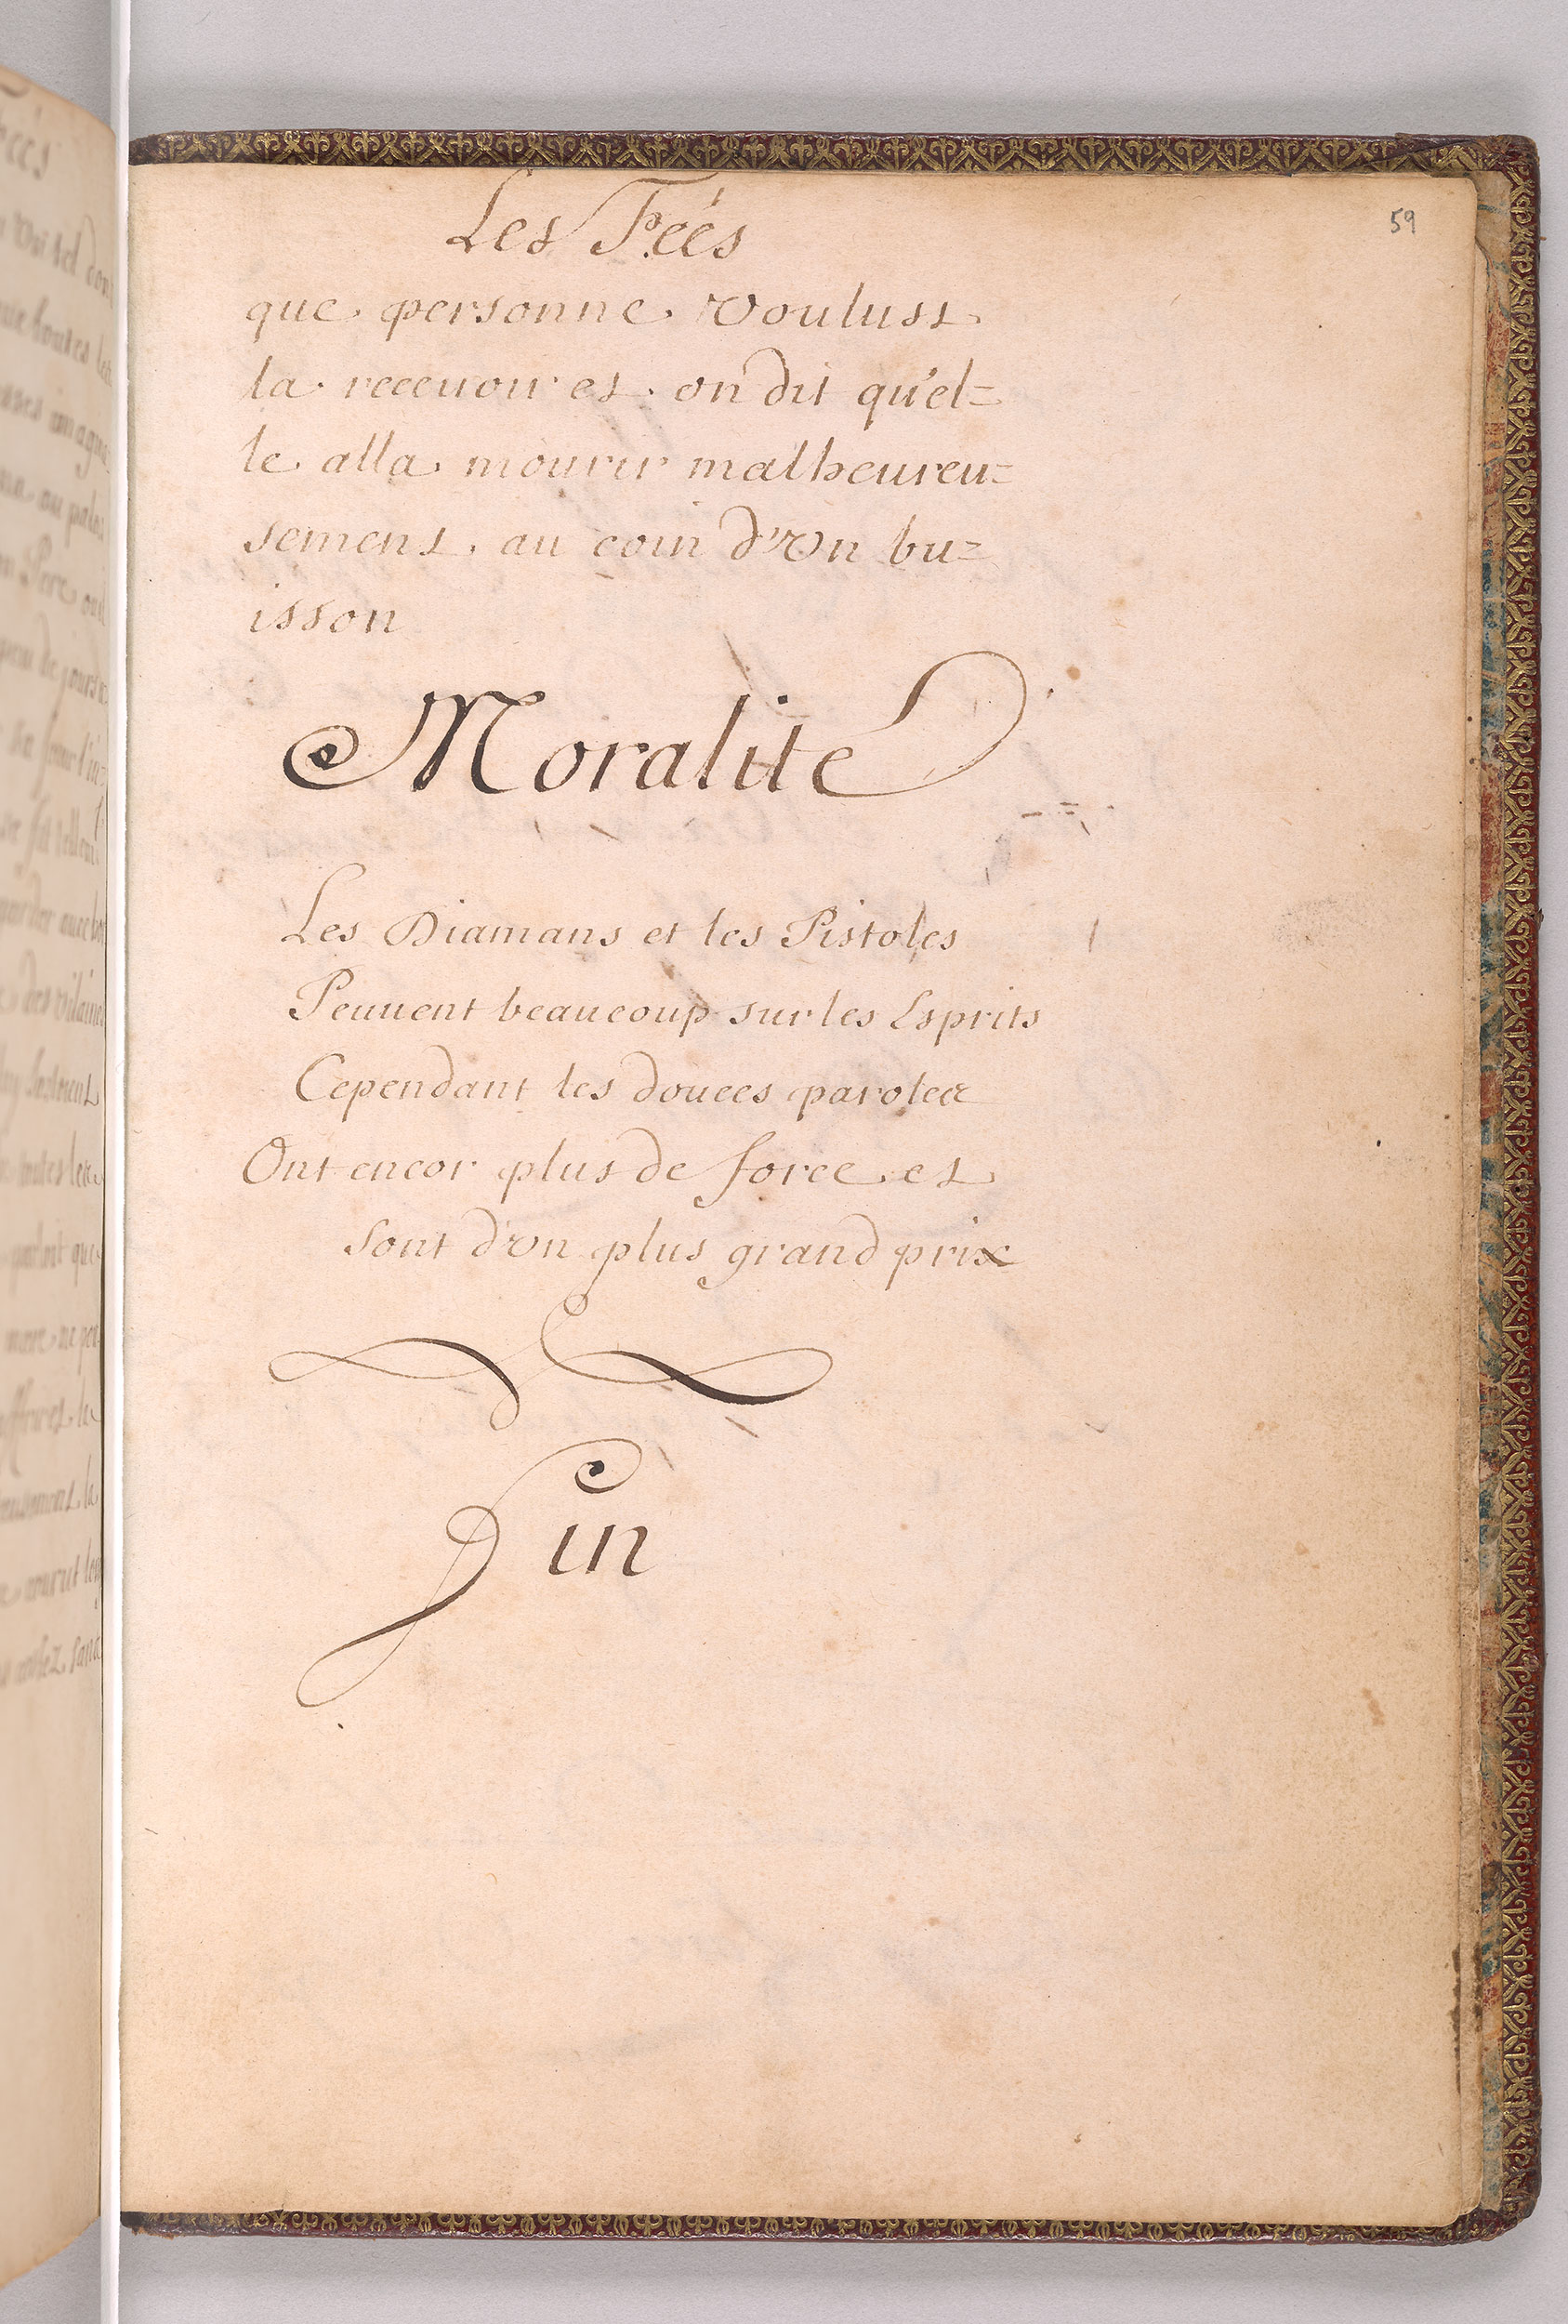 Les Fées
59
que personne voulust
la receuoir et on dit qu'el=
le alla mourir malheureu=
sement au coin d'vn bu=
isson
Moralité
Les Diamans et les Pistoles
Peuuent beaucoup sur les Esprits
Cependant les douces paroles
Ont encor plus de force et
sont d'vn plus grand prix
Fin